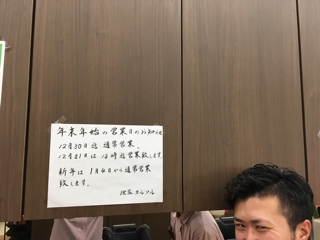 年末年始の営業日のお知らせ
12月30日迄 通常営業、
12月31日は 12時迄営業致します。
新年は 1月4日から通常営業
致します。